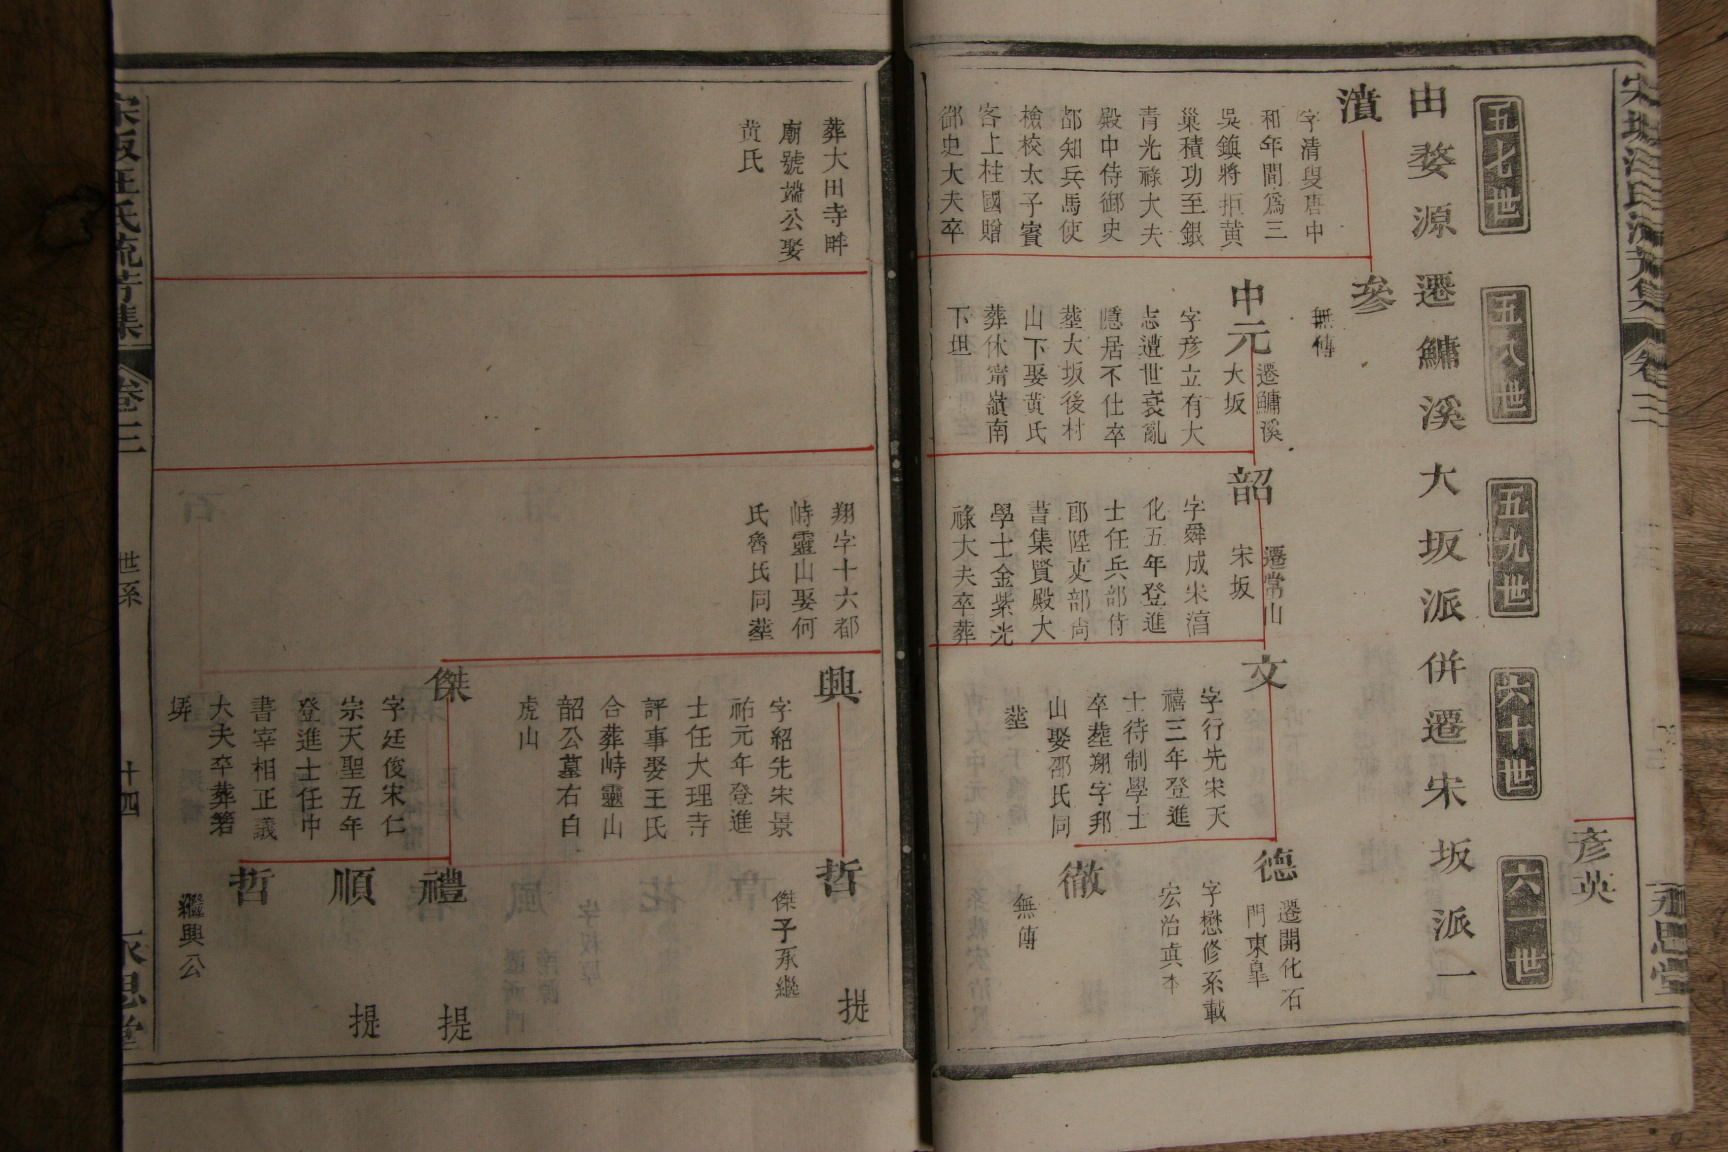 彥英
五七世
五八世
五九世
六十世
六一世
由婺源遷鱅溪大坂派併遷宋坂派一
濆
字清叟唐中
和年間為三
吳鎮將拒黃
巢積功至銀
青光祿大夫
殿中侍御史
都知兵馬使
檢校太子賓
客上柱國贈
御史大夫卒
葬大田寺畔
廟號端公娶
黃氏
參
無傳
中元
遷鱅溪
大坂
字彥立有大
志遭世衰亂
隱居不仕卒
塟大坂後村
山下娶黃氏
葬休甯嶺南
下坦
韶
遷常山
宋坂
字舜成宋淯
化五年登進
士任兵部侍
郎陞吏部尚
書集賢殿大
學士金紫光
祿大夫卒葬
翔字十六都
峙靈山娶何
氏魯氏同塟
文
字行先宋天
禧三年登進
士待制學士
卒塟翔字邦
山娶邵氏同
塟
興
字紹先宋景
祐元年登進
士任大理寺
評事娶王氏
合葬峙靈山
韶公墓右白
虎山
傑
字廷俊宋仁
宗天聖五年
登進士任中
書宰相正議
大夫卒葬箬
德
遷開化石
門東皐
字懋修系載
宏治眞本
徹
無傳
哲
傑子承繼
提
禮
提
順
提
哲
繼興公
宋坂汪氏流芳集
卷三
世系
十四
永思堂